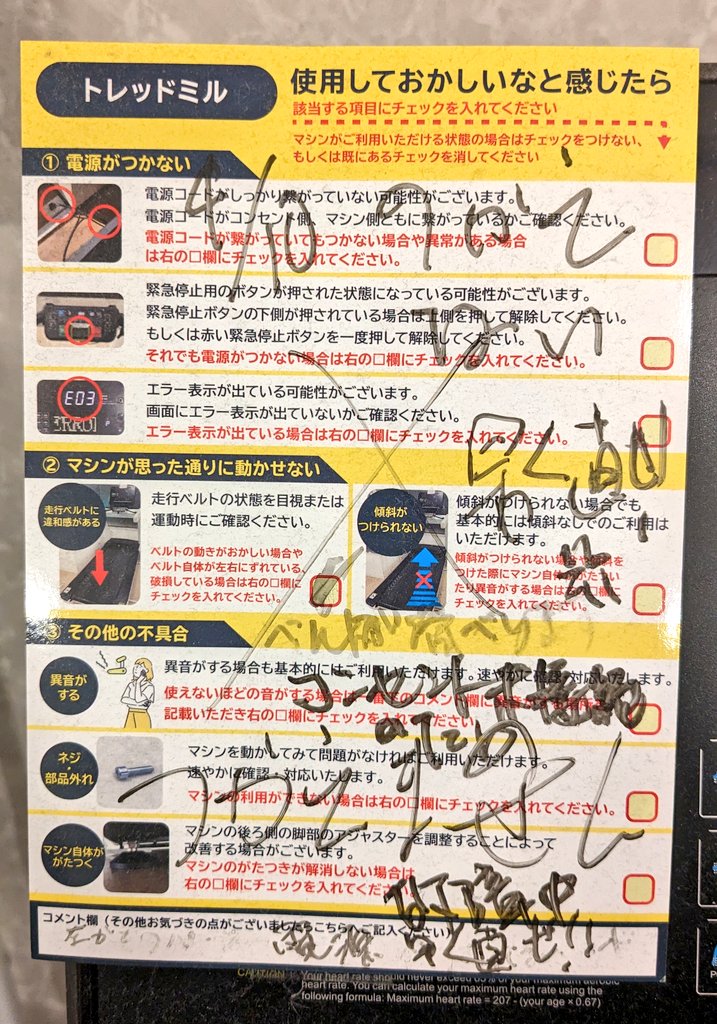 トレッドミル
使用しておかしいなと感じたら
該当する項目にチェックを入れてください
マシンがご利用いただける状態の場合はチェックをつけない、
もしくは既にあるチェックを消してください
① 電源がつかない
電源コードがしっかり繋がっていない可能性がございます。
電源コードがコンセント側、マシン側ともに繋がっているかご確認ください。
電源コードが繋がっていてもつかない場合や異常がある場合
は右の□欄にチェックを入れてください。
緊急停止用のボタンが押された状態になっている可能性がございます。
緊急停止ボタンの下側が押されている場合は上側を押して解除してください。
もしくは赤い緊急停止ボタンを一度押して解除してください。
それでも電源がつかない場合は右の□欄にチェックを入れてください。
E03
エラー表示が出ている可能性がございます。
画面にエラー表示が出ていないかご確認ください。
エラー表示が出ている場合は右の□欄にチェックを入れてください。
早く直せ
② マシンが思った通りに動かせない
走行ベルトに
違和感がある
走行ベルトの状態を目視または
運動時にご確認ください。
ベルトの動きがおかしい場合や
ベルト自体が左右にずれている、
破損している場合は右の□欄に
チェックを入れてください。
傾斜が
つけられない
傾斜がつけられない場合でも
基本的には傾斜なしでのご利用は
いただけます。
傾斜がつけられない場合や傾斜を
つけた際にマシン自体ががたつい
たり異音がする場合は右の□欄に
チェックを入れてください。
③ その他の不具合
異音が
する
異音がする場合も基本的にはご利用いただけます。速やかに確認・対応いたします。
使えないほどの音がする場合は一番下のコメント欄に異音がする箇所を
記載いただき右の□欄にチェックを入れてください。
ネジ・
部品外れ
マシンを動かしてみて問題がなければご利用いただけます。
速やかに確認・対応いたします。
マシンの利用ができない場合は右の□欄にチェックを入れてください。
つかえません
マシン自体が
がたつく
マシンの後ろ側の脚部のアジャスターを調整することによって
改善する場合がございます。
マシンのがたつきが解消しない場合は
右の□欄にチェックを入れてください。
コメント欄（その他お気づきの点がございましたらこちらへご記入ください）
CAUTION
Your heart rate should never exceed 85% of your maximum aerobic
heart rate. You can calculate your maximum heart rate using the
following formula: Maximum heart rate = 207 - (your age × 0.67)